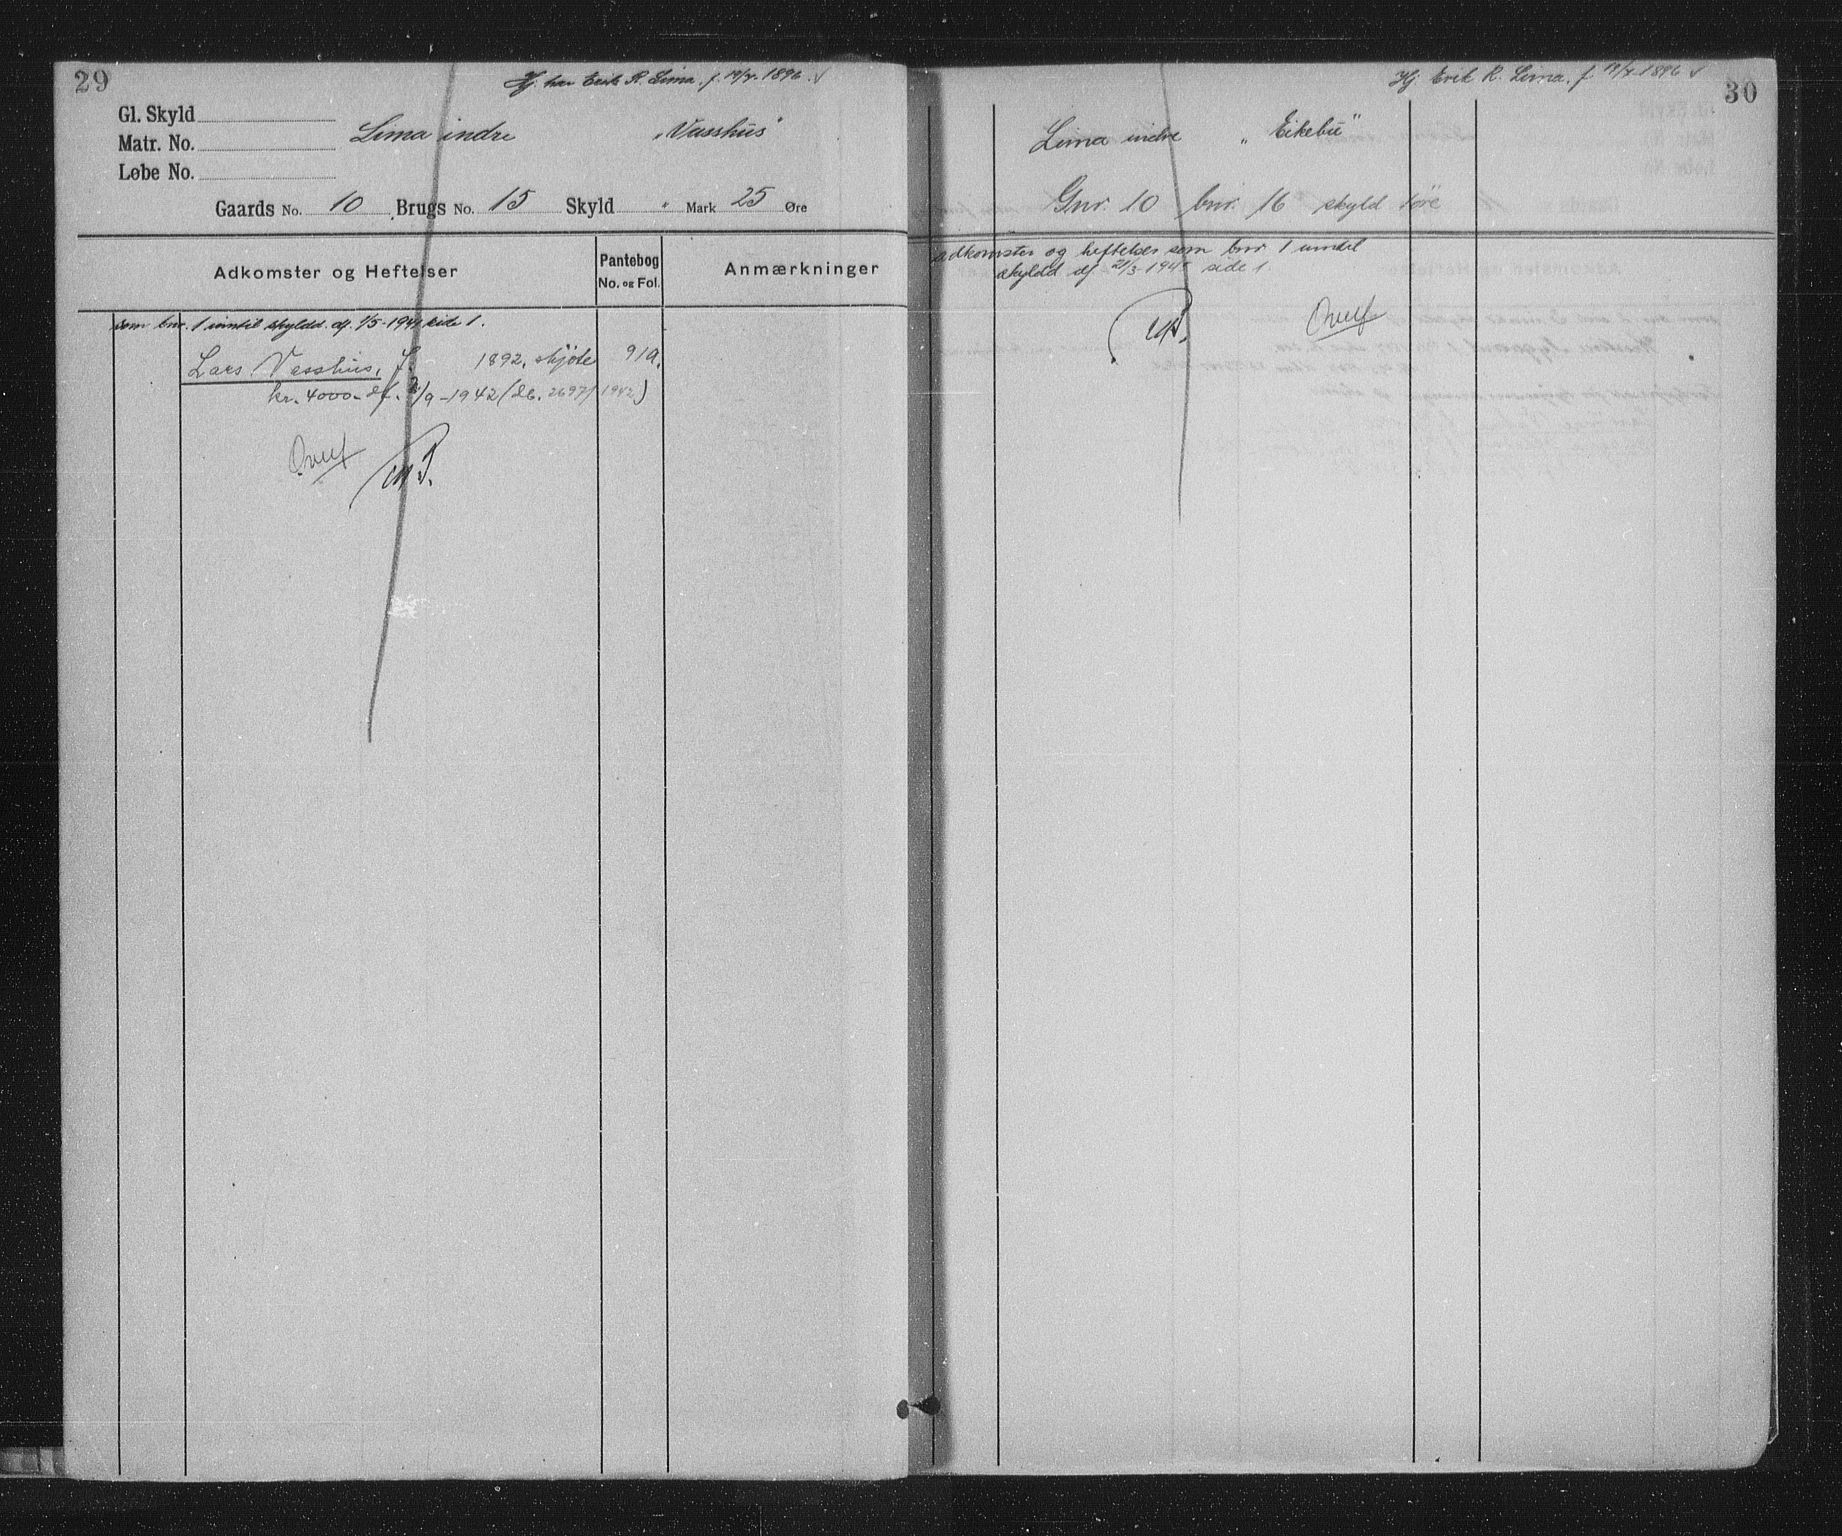 29
Hj. har Erik R. Lima. f. 1896. √
Gl. Skyld
Matr. No. Lima indre „Vasshus"
Løbe No.
Gaards No. 10 Brugs No. 15 Skyld " Mark 25 Øre
Adkomster og Heftelser Pantebog No. og Fol. Anmærkninger
som bnr. 1 inntil skyldd. df. 1/5-1941 side 1.
Lars Vasshus, f. 1892, skjøte 919.
kr. 4000.- df. /9-1942 (db. 2697/1942)
Overf
30
Hj. Erik R. Lima. f. 1896 √
Lima indre „Eikebu"
Gnr. 10 bnr. 16 skyld 1 øre
adkomster og heftelser som bnr. 1 inntil
skyldd df. 21/3-1945 side 1.
Overf